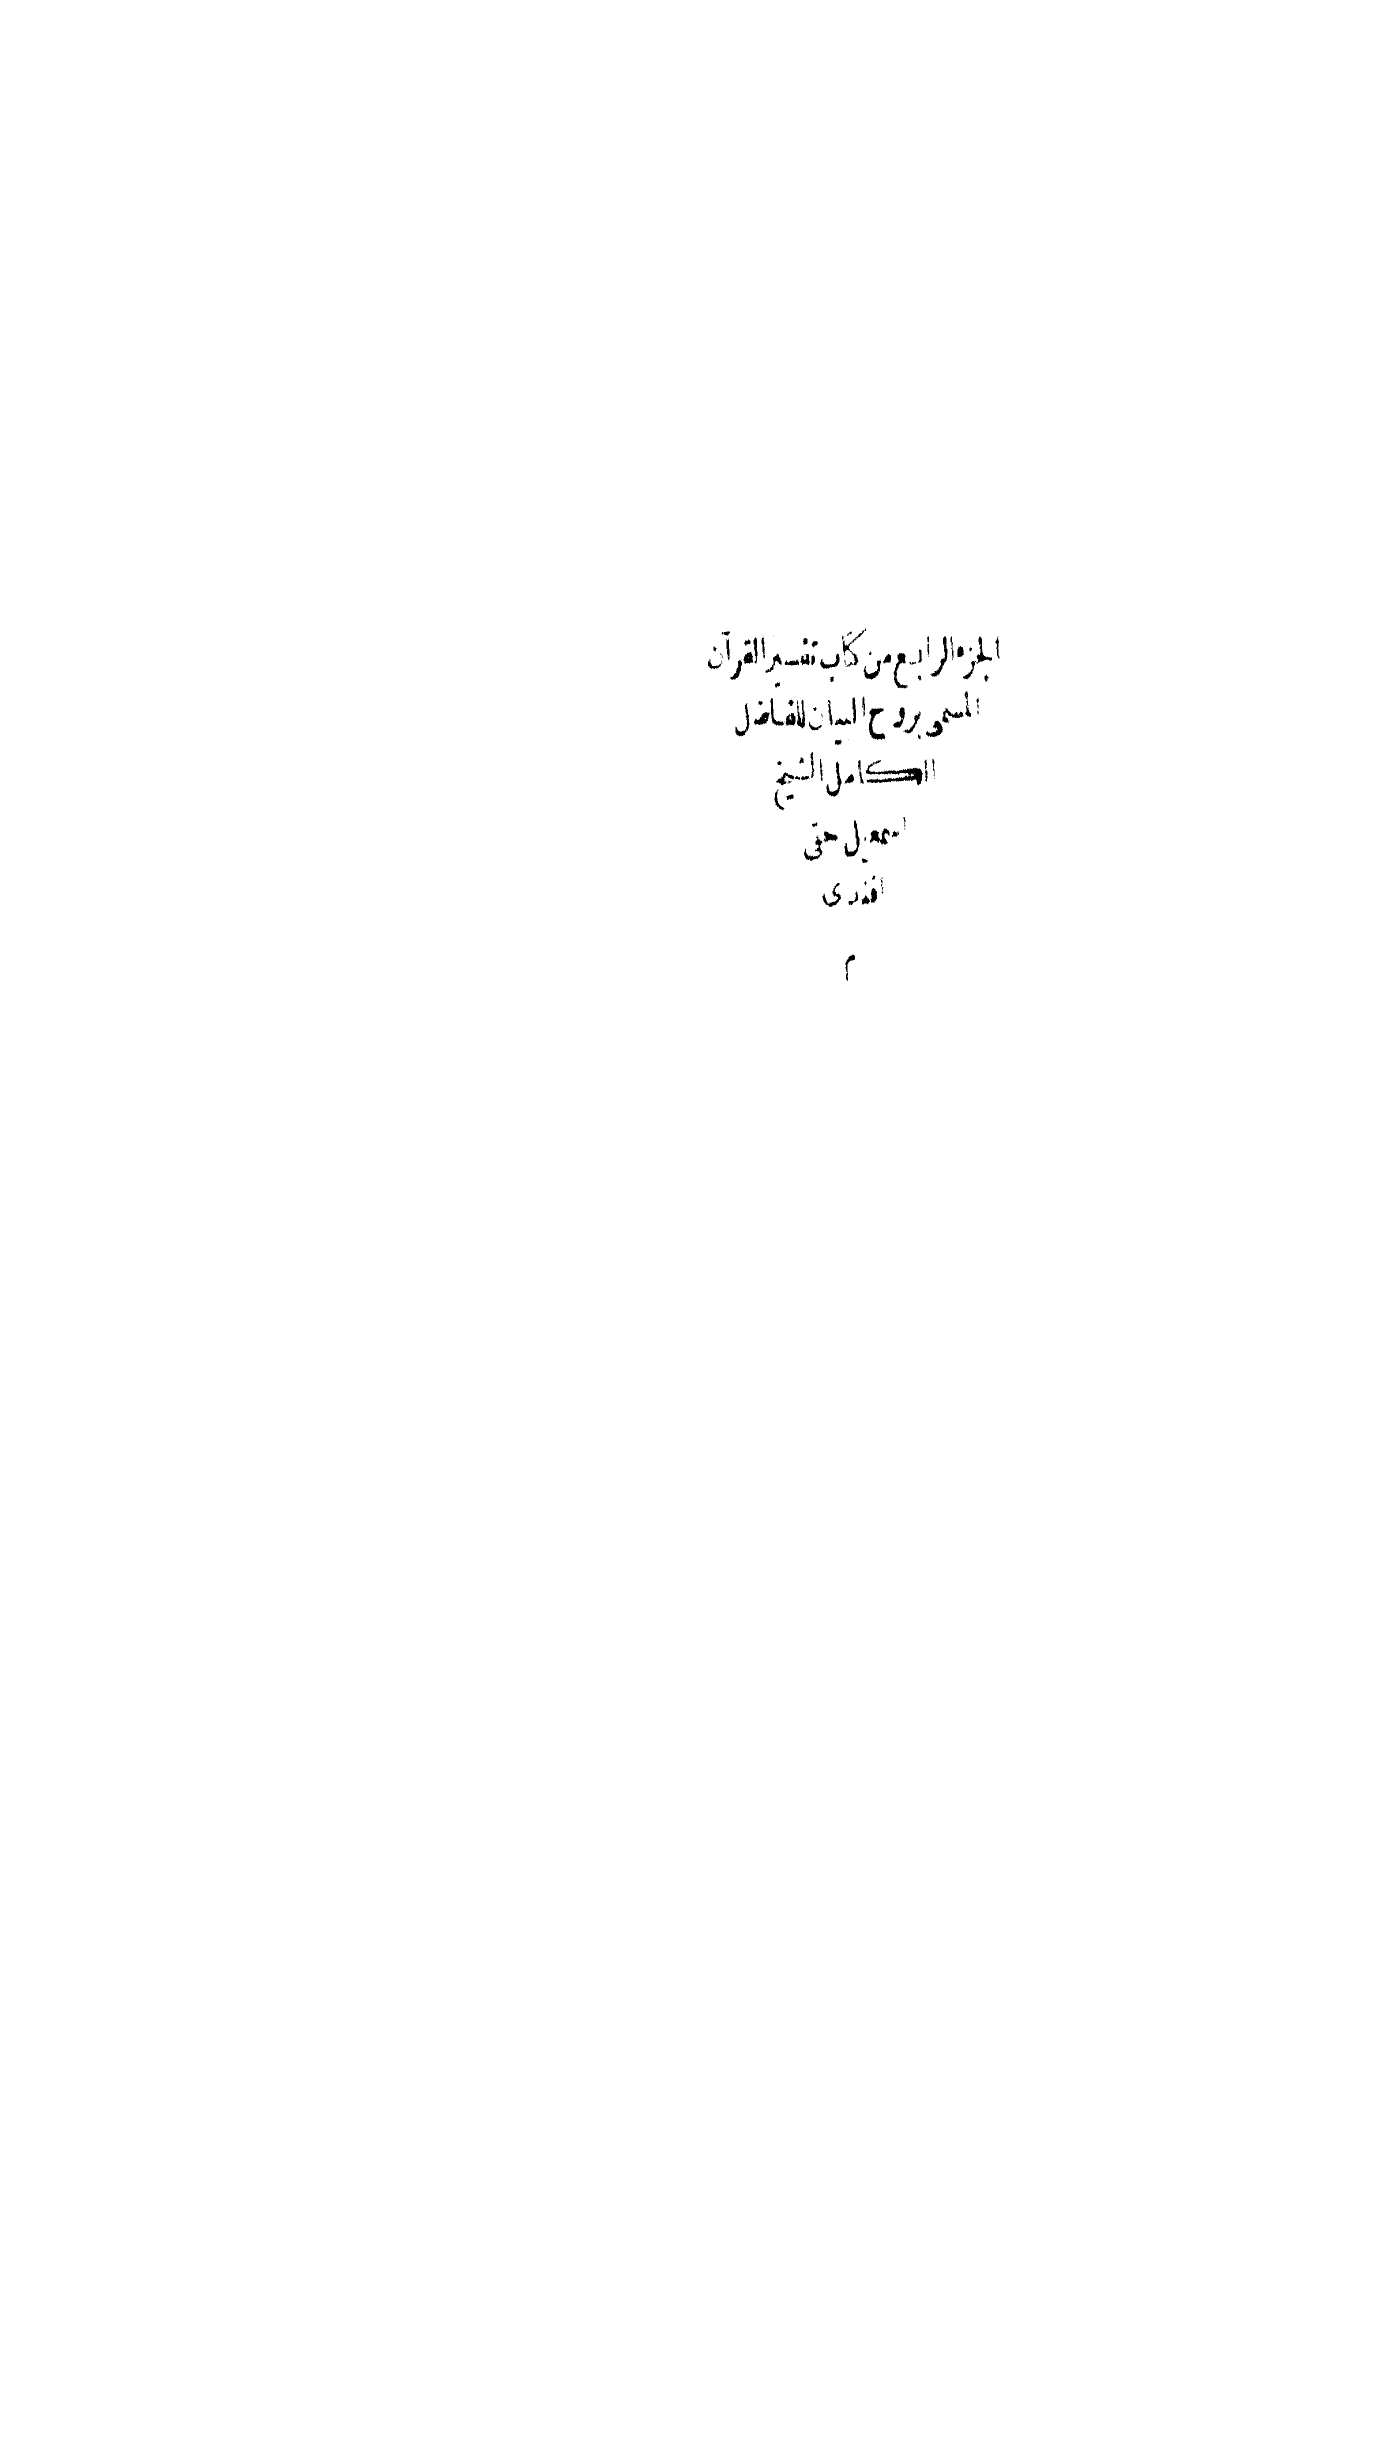 الجزء الرابع من كتاب تفسير القرآن
المسمى بروح البيان للفاضل
الكامل الشيخ
اسمعيل حقى
افندى
م